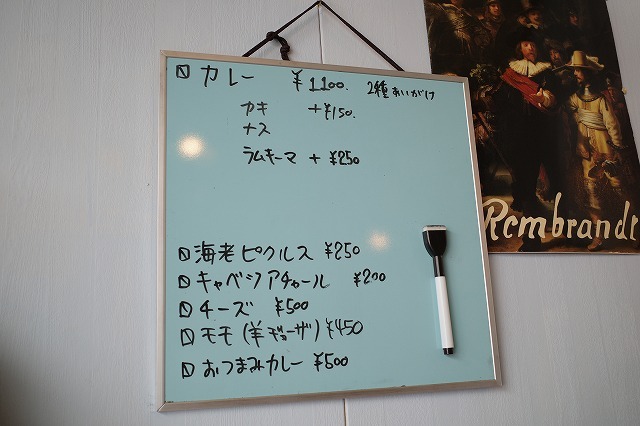 カレー ¥1100. 2種あいがけ
カキ +¥150.
ナス
ラムキーマ + ¥250
海老ピクルス ¥250
キャベツアチャール ¥200
チーズ ¥500
モモ(羊ギョーザ) ¥450
おつまみカレー ¥500
Rembrandt